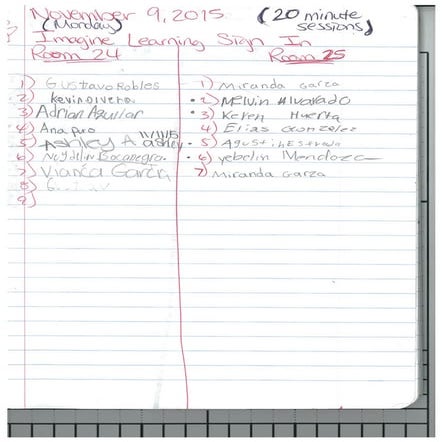 November 9, 2015 (20 minute
(Monday) sessions)
Imagine Learning Sign In
Room 24
Room 25
1) Gustavo Robles
2)
3) Adrian Aguilar
4) Ana
11/11/15
5) Ashley A ashley
6) Bocanegra
7) Vianca Garcia
8)
9)
1) Miranda Garza
2) Melvin Alvarado
3) Kelen Huerta
4) Elias Gonzalez
5) Agustin Estrada
6) Yebelin Mendoza
7) Miranda Garza